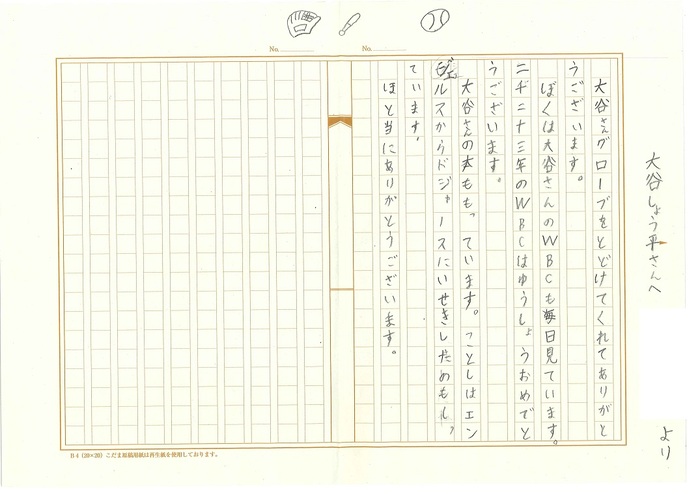 大谷しょう平さんへ
より
No.
No.
大谷さんグローブをとどけてくれてありがと
うございます。
ぼくは大谷さんのWBCも毎日見ています。
二千二十三年のWBCはゆうしょうおめでと
うございます。
大谷さんの本ももっています。ことしはエン
ルスからドジャースにいせきしたのもしっ
ています。
ほと当にありがとうございます。
B4(20×20)こだま原稿用紙は再生紙を使用しております。